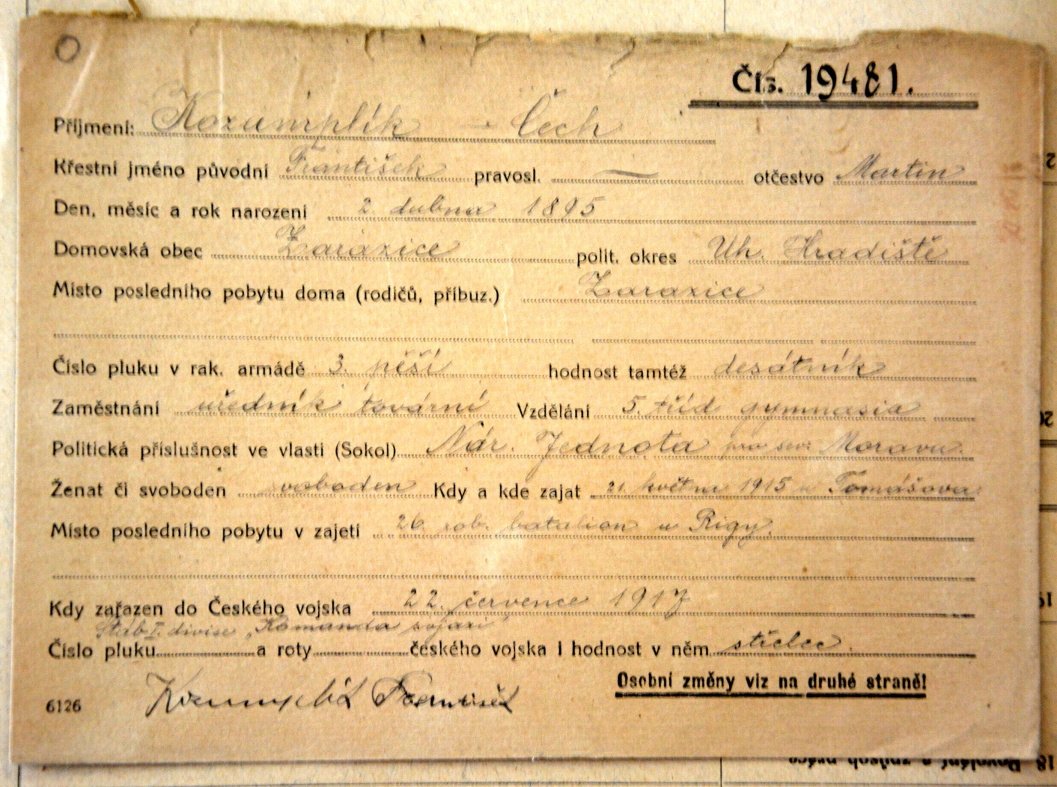 Čís. 19481.
Příjmení: Rozumplík – Čech
Křestní jméno původní František pravosl. — otčestvo Martin
Den, měsíc a rok narození 2. dubna 1895
Domovská obec Žaražice polit. okres Uh. Hradiště
Místo posledního pobytu doma (rodičů, příbuz.) Žaražice
Číslo pluku v rak. armádě 3. pěší hodnost tamtéž desátník
Zaměstnání úředník tovární Vzdělání 5. tříd gymnasia
Politická příslušnost ve vlasti (Sokol) Nár. Jednota pro Moravu.
Ženat či svoboden svoboden Kdy a kde zajat 21. května 1915 u Tomášova
Místo posledního pobytu v zajetí 26. rob. batalion u Rigy.
Kdy zařazen do Českého vojska 22. července 1917
Štáb I. divise „Komanda
Číslo pluku a roty českého vojska i hodnost v něm střelec.
František
Osobní změny viz na druhé straně!
6126